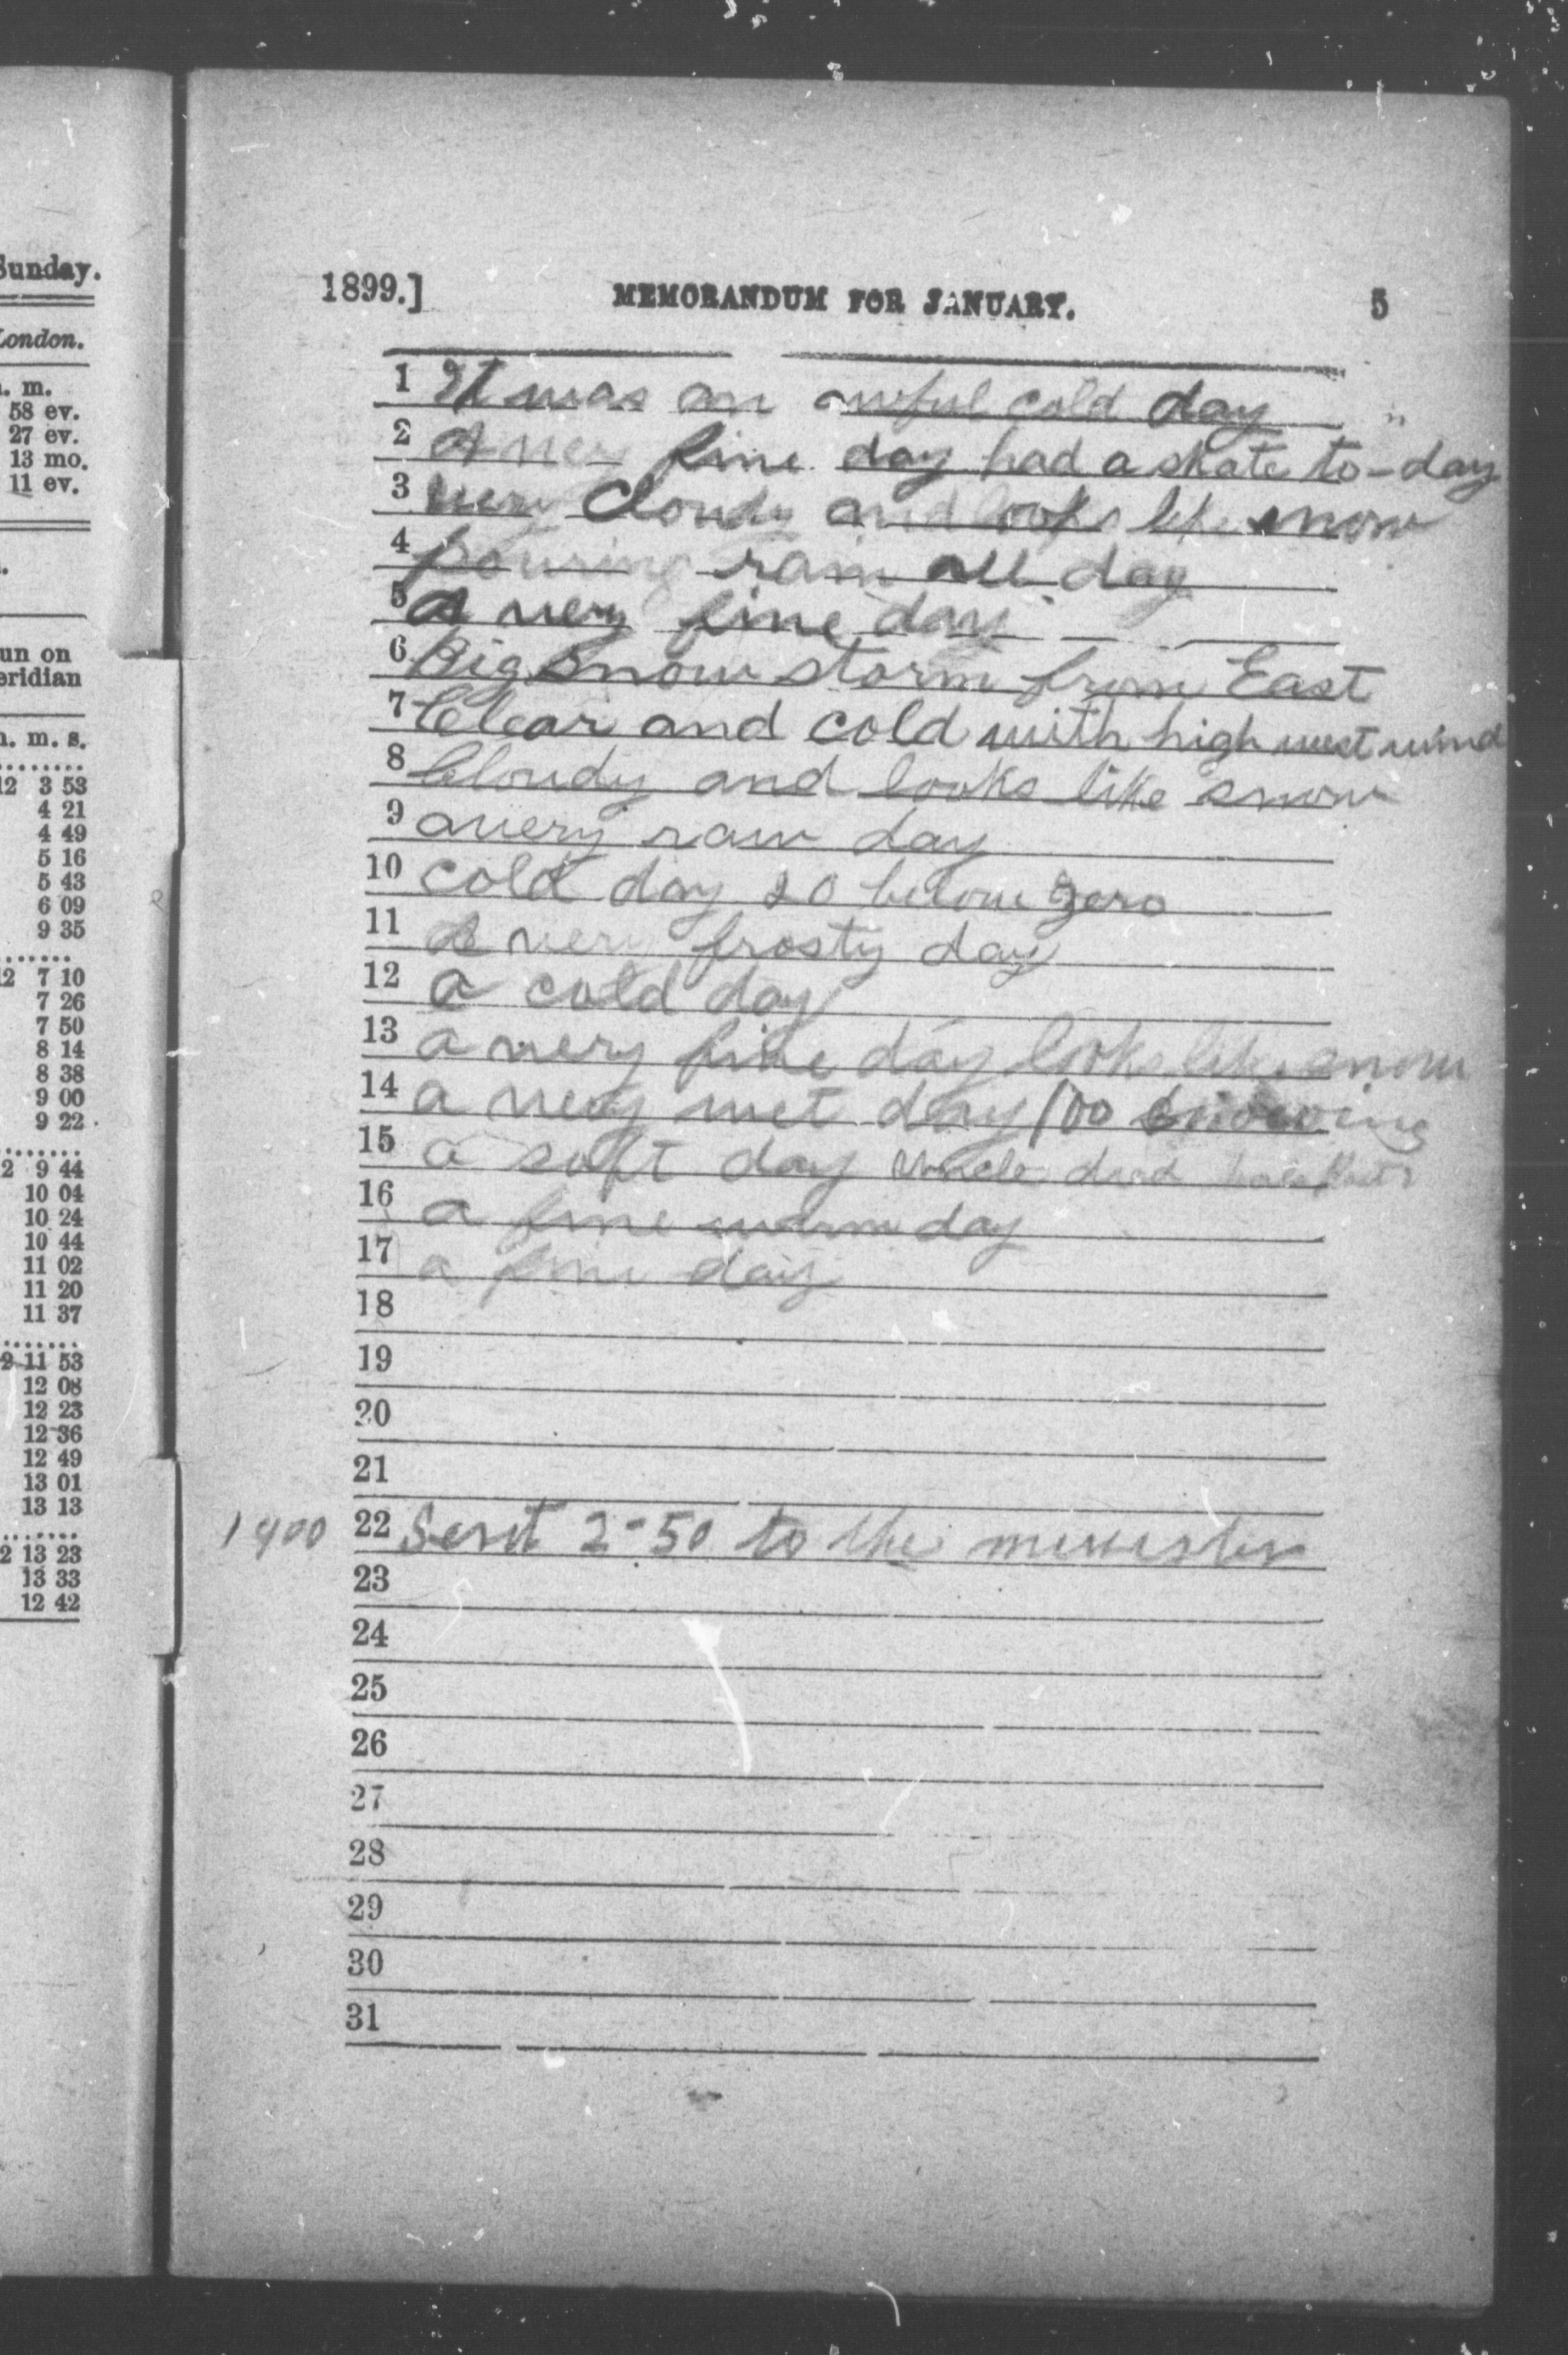 Sunday.
London.
. m.
58 ev.
27 ev.
13 mo.
11 ev.
un on
eridian
. m. s.
12 3 53
4 21
4 49
5 16
5 43
6 09
9 35
12 7 10
7 26
7 50
8 14
8 38
9 00
9 22
2 9 44
10 04
10 24
10 44
11 02
11 20
11 37
2 11 53
12 08
12 23
12 36
12 49
13 01
13 13
2 13 23
13 33
12 42
1899.] MEMORANDUM FOR JANUARY. 5
1 It was an awful cold day
2 A very fine day had a skate to-day
3 very Cloudy and looks like snow
4 pouring rain all day
5 A very fine day
6 Big Snow storm from East
7 Clear and cold with high west wind
8 Cloudy and looks like snow
9 a very raw day
10 cold day 20 below zero
11 A very frosty day
12 a cold day
13 a very fine day looks like snow
14 a very wet day snowing
15 a soft day uncle died
16 a fine warm day
17 a fine day
18
19
20
21
1900 22 Sent 2-50 to the minister
23
24
25
26
27
28
29
30
31